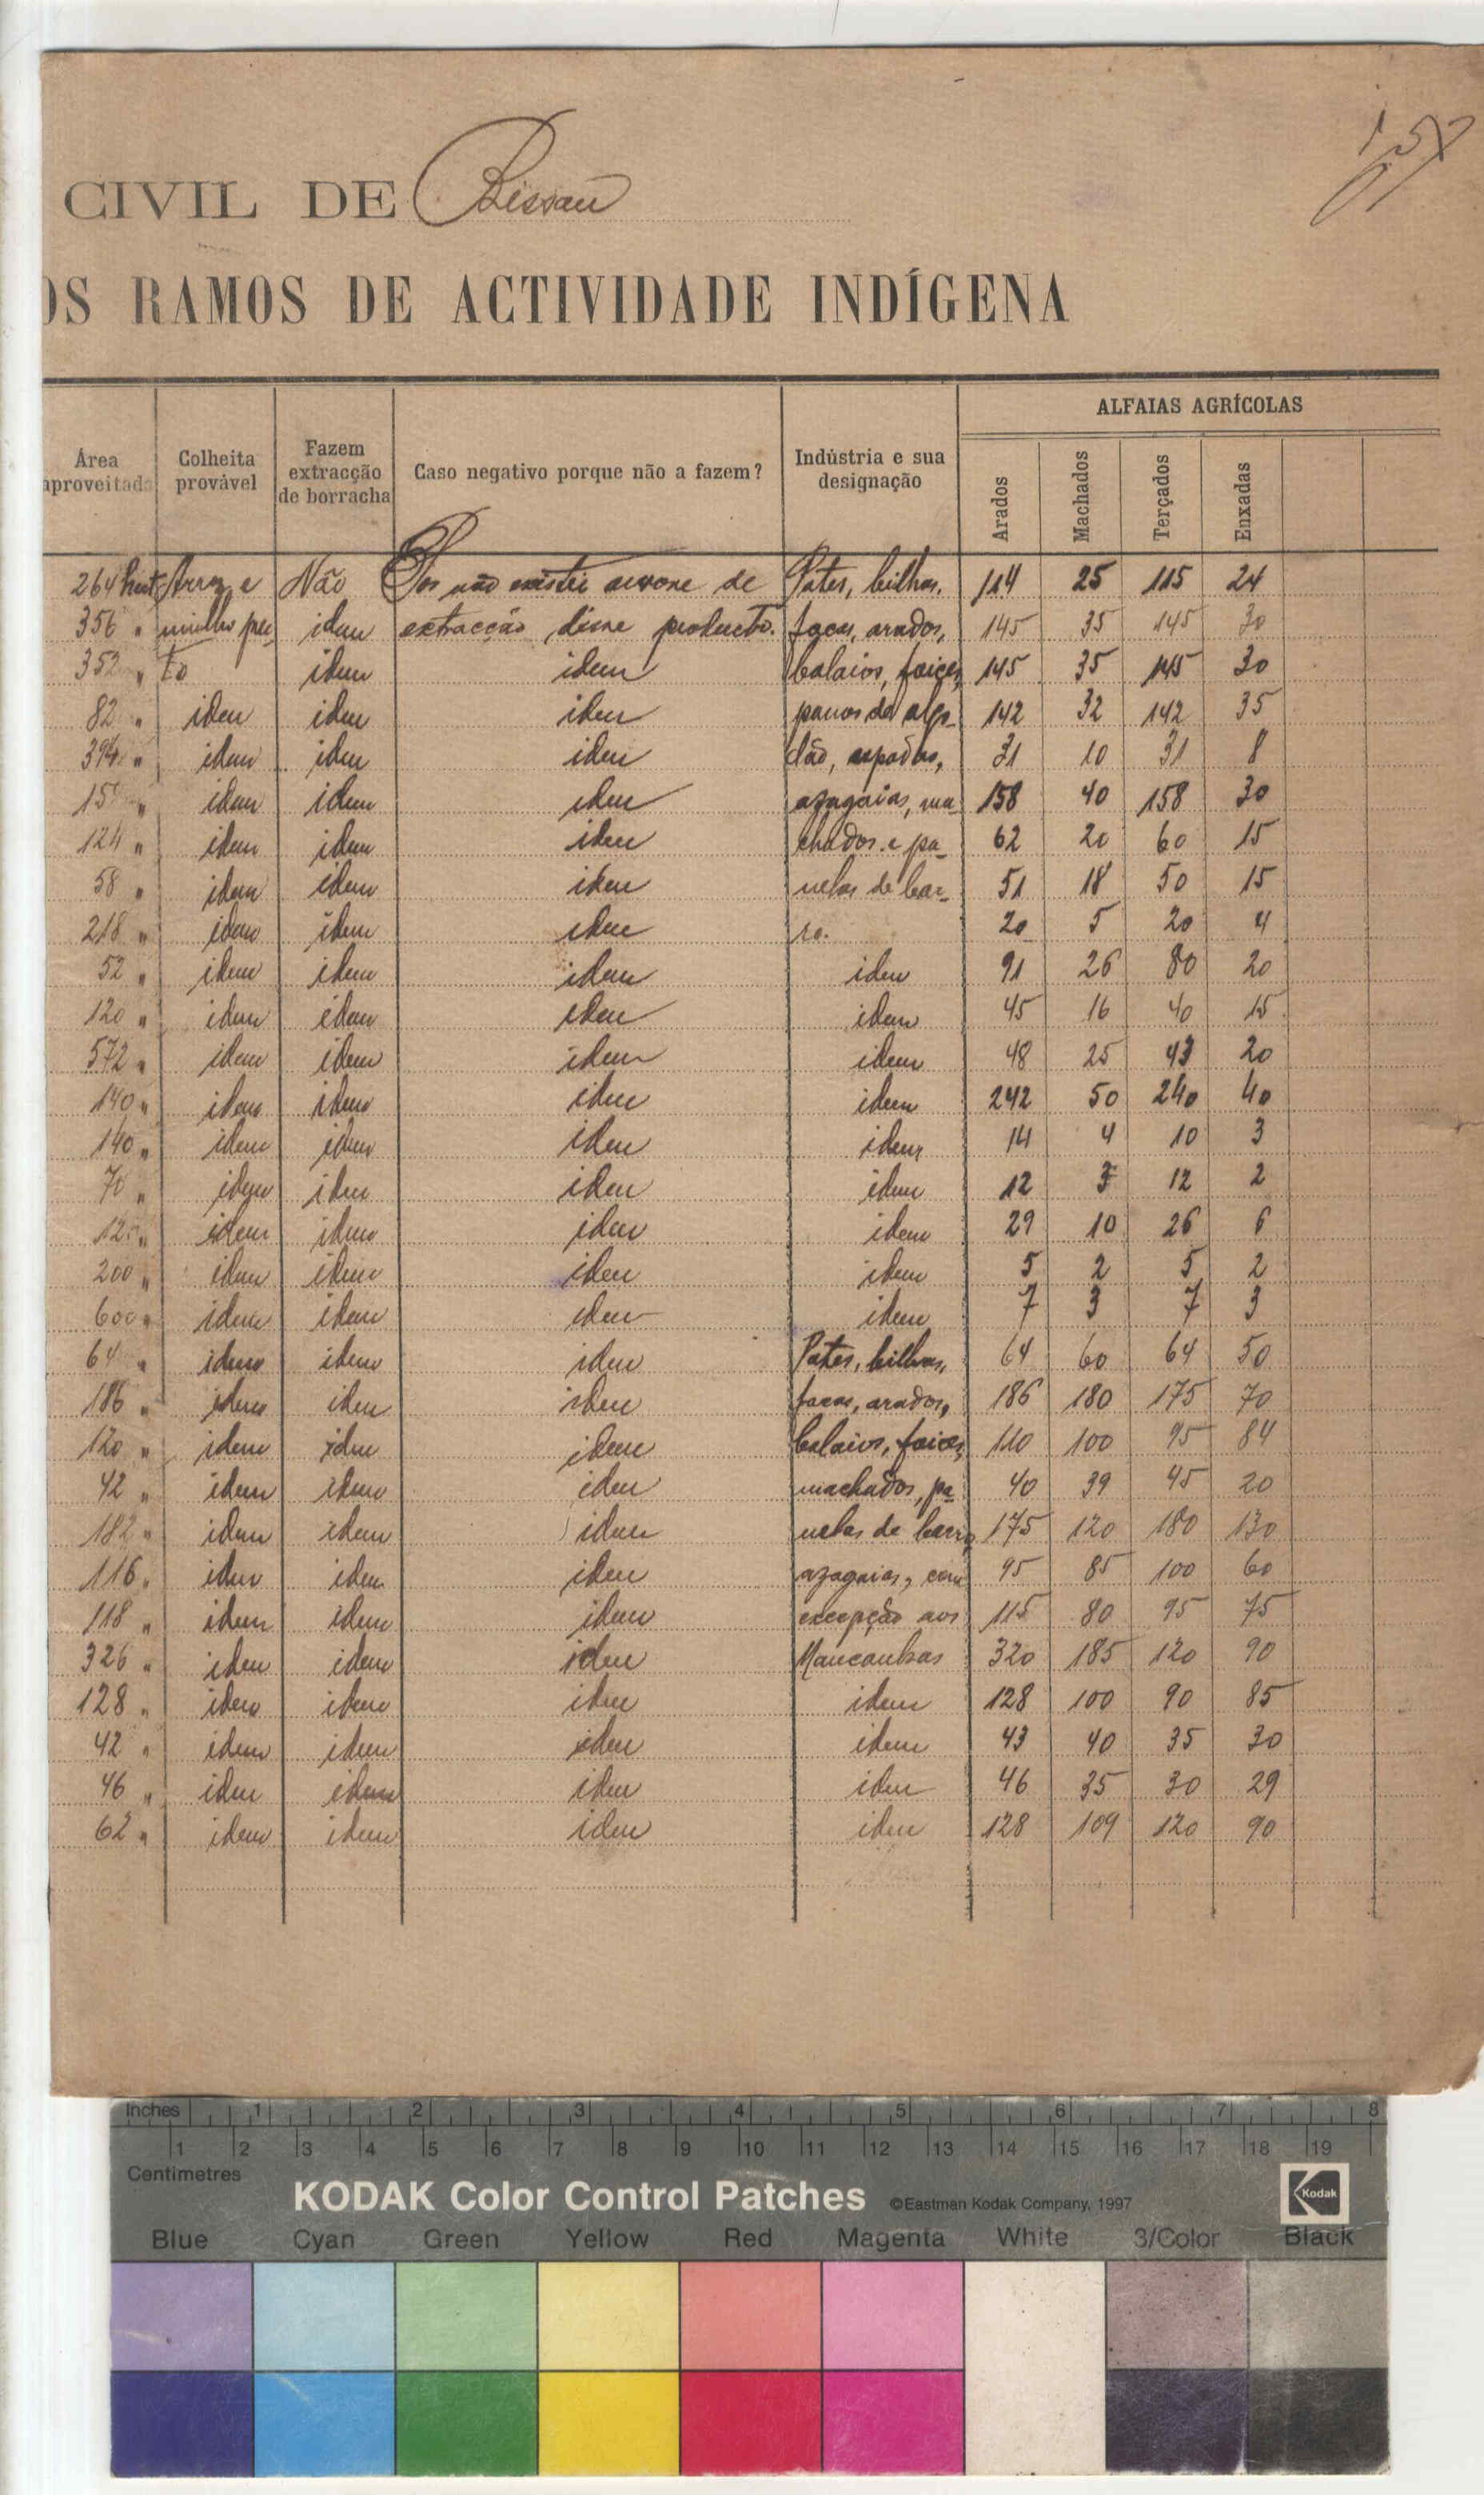 157
CIVIL DE Bissau
OS RAMOS DE ACTIVIDADE INDÍGENA
Área aproveitada | Colheita provável | Fazem extracção de borracha | Caso negativo porque não a fazem? | Indústria e sua designação | ALFAIAS AGRÍCOLAS
Arados | Machados | Terçados | Enxadas
264 hect | Arroz e | Não | Por não existir arvore de | Potes, bilhas, | 114 | 25 | 115 | 24
356 " | milho pre | idem | extracção desse producto. | facas, arados, | 145 | 35 | 145 | 30
352 " | to | idem | idem | balaios, foices, | 145 | 35 | 145 | 30
82 " | idem | idem | idem | panos de algo- | 142 | 32 | 142 | 35
394 " | idem | idem | idem | dão, espadas, | 31 | 10 | 31 | 8
" | idem | idem | idem | azagaias, ma | 158 | 40 | 158 | 30
124 " | idem | idem | idem | chados e pa- | 62 | 20 | 60 | 15
58 " | idem | idem | idem | nelas de bar- | 51 | 18 | 50 | 15
218 " | idem | idem | idem | ro. | 20 | 5 | 20 | 4
52 " | idem | idem | idem | idem | 91 | 26 | 80 | 20
120 " | idem | idem | idem | idem | 45 | 16 | 40 | 15
572 " | idem | idem | idem | idem | 48 | 25 | 43 | 20
140 " | idem | idem | idem | idem | 242 | 50 | 240 | 40
140 " | idem | idem | idem | idem | 14 | 4 | 10 | 3
70 " | idem | idem | idem | idem | 12 | 3 | 12 | 2
120 " | idem | idem | idem | idem | 29 | 10 | 26 | 6
200 " | idem | idem | idem | idem | 5 | 2 | 5 | 2
600 " | idem | idem | idem | idem | 7 | 3 | 7 | 3
64 " | idem | idem | idem | Potes, bilhas, | 64 | 60 | 64 | 50
186 " | idem | idem | idem | facas, arados, | 186 | 180 | 175 | 70
120 " | idem | idem | idem | balaios, foices, | 110 | 100 | 95 | 84
42 " | idem | idem | idem | machados, pa- | 40 | 39 | 45 | 20
182 " | idem | idem | idem | nelas de barro, | 175 | 120 | 180 | 130
116 " | idem | idem | idem | azagaias, com | 95 | 85 | 100 | 60
118 " | idem | idem | idem | excepção aos | 115 | 80 | 95 | 75
326 " | idem | idem | idem | Mancanhas | 320 | 185 | 120 | 90
128 " | idem | idem | idem | idem | 128 | 100 | 90 | 85
42 " | idem | idem | idem | idem | 43 | 40 | 35 | 30
46 " | idem | idem | idem | idem | 46 | 35 | 30 | 29
62 " | idem | idem | idem | idem | 128 | 109 | 120 | 90
Inches 1 2 3 4 5 6 7 8
1 2 3 4 5 6 7 8 9 10 11 12 13 14 15 16 17 18 19
Centimetres
KODAK Color Control Patches ©Eastman Kodak Company, 1997 Kodak
Blue Cyan Green Yellow Red Magenta White 3/Color Black